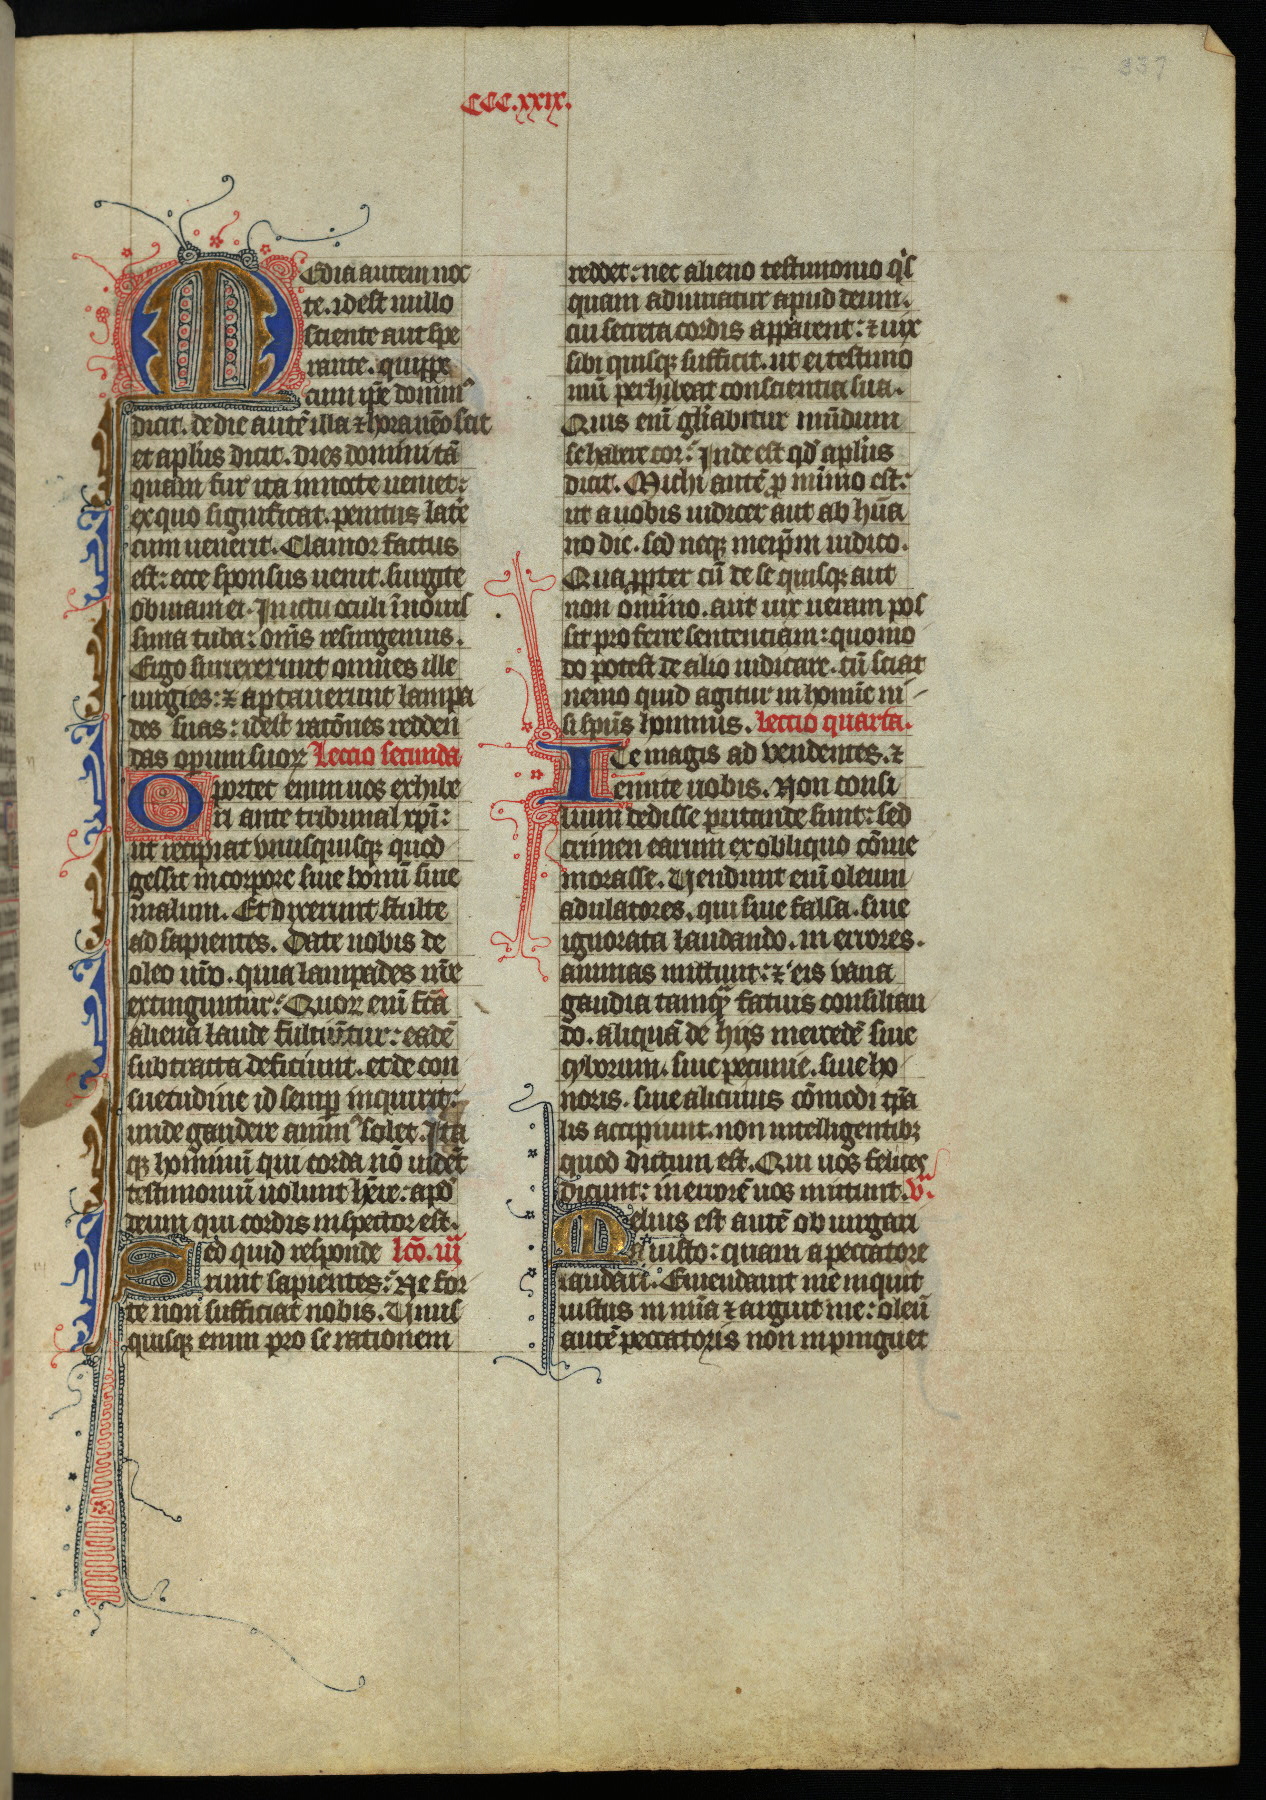 337
CCC.xxix.
Media autem noc
te. id est nullo
sciente aut spe
rante. quippe
cum ip̄e domin᷒
dicit. de die autē illa ⁊ hora nēo scit
et apl̄us dicit. dies domini tā
quam fur ita in nocte ueniet:
ex quo significat. penitus late
cum uenerit. Clamor factus
est: ecce sponsus uenit. surgite
obuiam ei. In ictu oculi ī nouis
sima tuba: om̄s resurgemus.
Ergo surrexerunt omnes ille
uirgies: ⁊ aptauerunt lampa
des suas: idest ratōnes redden
das opum suoꝝ Leccio secunda
Oportet enim nos exhibe
ri ante tribunal xp̄i:
ut recipiat vnusquisqꝫ quod
gessit in corpore siue bonū siue
malum. Et dixerunt stulte
ad sapientes. Date nobis de
oleo ur̄o. quia lampades nr̄e
extinguntur: Quoꝝ enī fc̄a
aliena laude fulciūtur: eadē
subtracta deficiunt. et de con
suetudine id semꝑ inquirit:
unde gaudere anim᷒ solet. Ita
qꝫ hominū qui corda nō uidēt
testimoniū uolunt hēre: apd̄
deum qui cordis inspector est.
Sed quid responde lcō. iij
runt sapientes: Ne for
te non sufficiat nobis. Unus
quisqꝫ enim pro se rationem
reddet: nec alieno testimonio q̄s
quam adiuuatur apud deum.
cui secreta cordis apparent: ⁊ uix
sibi quisqꝫ sufficit. ut ei testimo
niū perhibeat conscientia sua.
Quis enī gl̄iabitur mūdum
se habere cor: Inde est qd̄ apl̄us
dicit. Michi autē ꝓ mīmo est:
ut a uobis iudicer aut ab hūa
no die. sed neqꝫ meip̄m iudico.
Qua ꝓpter cū de se quisqꝫ aut
non ōnino. aut uix ueram pos
sit proferre sententiam: quomo
do potest de alio iudicare. cū sciat
nemo quid agitur in homīe ni
si sp̄us hominis. Leccio quarta.
Ite magis ad vendentes. ⁊
emite uobis. Non consi
lium dedisse putande sunt: sed
crimen earum ex obliquo cōme
morasse. Vendunt enī oleum
adulatores. qui siue falsa. siue
ignorata laudando. in errores.
animas mittunt: ⁊ eis vana
gaudia tamqͣ fatuis consilian
do. aliquā de hijs mercedē siue
cyborum. siue pecunie. siue ho
noris. siue alicuius cōmodi tp̄a
lis accipiunt. non intelligentibꝫ
quod dictum est. Qui uos felices
dicunt: in errorē uos mittunt. v᷒.
Melius est autē obiurgari
a iusto: quam a peccatore
laudari. Emendauit me inquit
iustus in mīa ⁊ arguit me: oleū
autē peccatoris non inpinguet